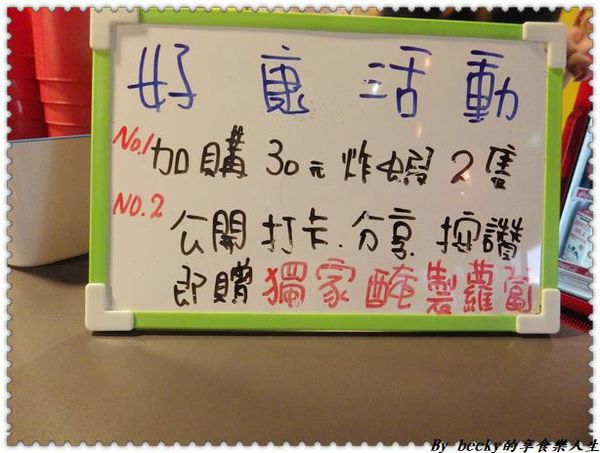 好康活動
No.1 加購30元炸蝦2隻
NO.2 公開打卡.分享.按讚
即贈獨家醃製蘿蔔
By becky的享食樂人生